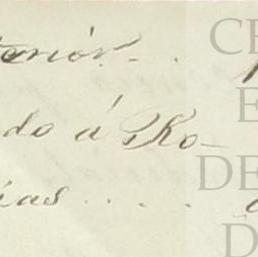 terior . . .
do á Ro-
ias . . . .
CE
E
DE
D